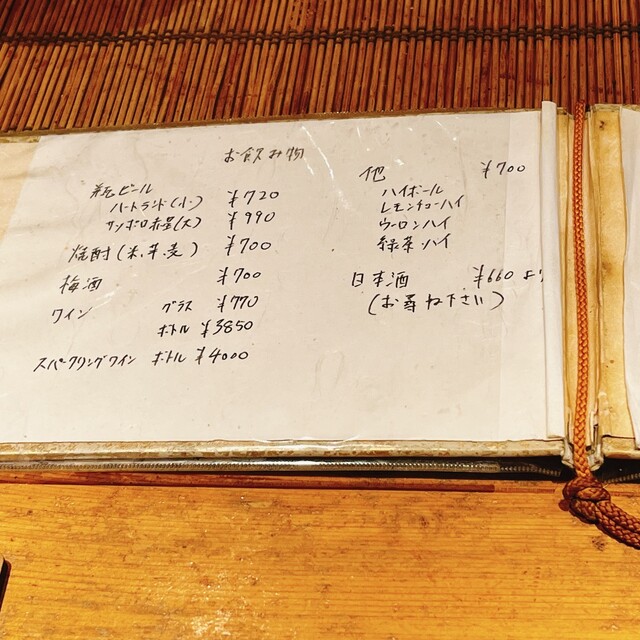 お飲み物
瓶ビール
ハートランド(小) ¥720
サッポロ赤星(大) ¥990
焼酎(米、芋、麦) ¥700
梅酒 ¥700
ワイン グラス ¥770
ボトル ¥3850
スパークリングワイン ボトル ¥4000
他 ¥700
ハイボール
レモンチューハイ
ウーロンハイ
緑茶ハイ
日本酒 ¥660より
(お尋ね下さい)